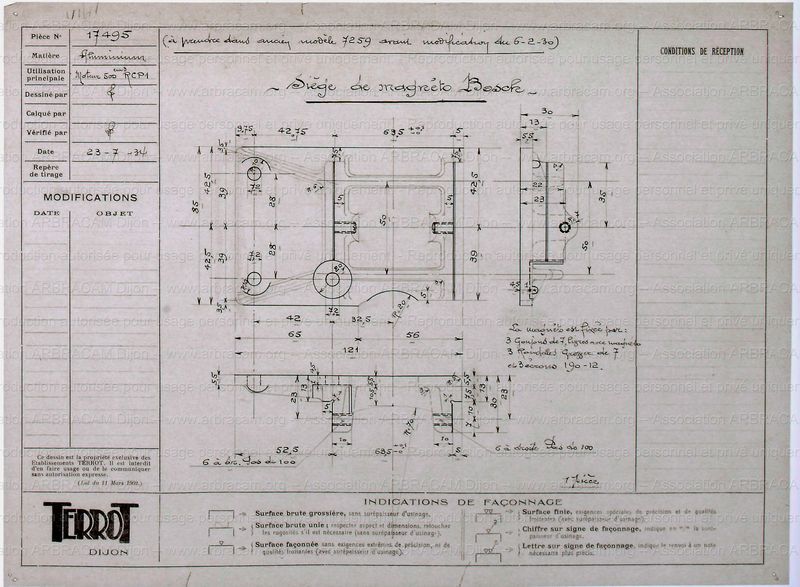 Pièce N° 17495
Matière Aluminium
Utilisation principale Moteur 500 RCP1
Dessiné par
Calqué par
Vérifié par
Date 23-7-34
Repère de tirage
MODIFICATIONS
DATE OBJET
(à prendre dans ancien modèle 7259 avant modification du 6-2-30)
Siège de magnéto Bosch
CONDITIONS DE RÉCEPTION
9,75 42,75 63,5 5
30
13
5,5
3,5 42,5 39 28 85
42,5 39 28 3,5
50
42,5 39
22
23
35
50
42 32,5
65 56
121
R.20
La magnéto est fixée par:
3 Goujons de 7, lignes avec magnéto
3 Rondelles Grover de 7
et 3 écrous 190-12.
5,5 23 13
23 30
R.70
10 10
52,5 63,5 5
6 à br. Pas de 100
6 à droite Pas de 100
1 pièce
Ce dessin est la propriété exclusive des
Etablissements TERROT. Il est interdit
d'en faire usage ou de le communiquer
sans autorisation expresse.
(Loi du 11 Mars 1902.)
TERROT
DIJON
INDICATIONS DE FAÇONNAGE
Surface brute grossière, sans surépaisseur d'usinage.
Surface brute unie; respecter aspect et dimensions, retoucher
les rugosités s'il est nécessaire (sans surépaisseur d'usinage)
Surface façonnée sans exigences extrêmes de précision, ni de
qualités frottantes (avec surépaisseur d'usinage).
Surface finie, exigences spéciales de précision et de qualités
frottantes (avec surépaisseur d'usinage).
Chiffre sur signe de façonnage, indique en m/m la surépaisseur
d'usinage.
Lettre sur signe de façonnage, indique le renvoi à un note
nécessaire plus précis.
Reproduction autorisée pour usage personnel et privé uniquement
www.arbracam.org - Association ARBRACAM Dijon